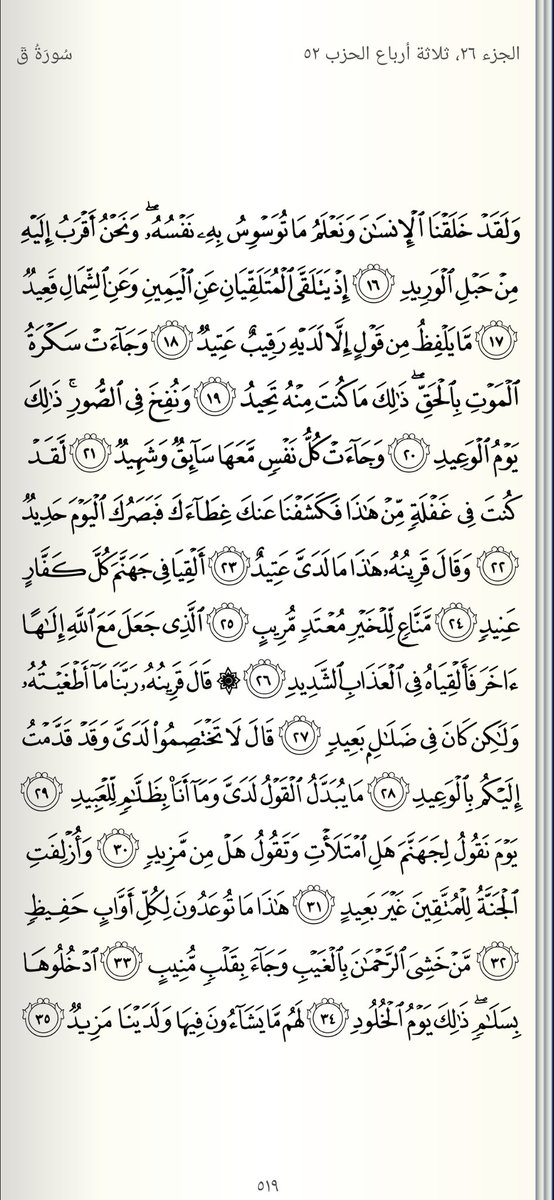 الجزء ٢٦، ثلاثة أرباع الحزب ٥٢
سُورَةُ قٓ
وَلَقَدۡ خَلَقۡنَا ٱلۡإِنسَٰنَ وَنَعۡلَمُ مَا تُوَسۡوِسُ بِهِۦ نَفۡسُهُۥۖ وَنَحۡنُ أَقۡرَبُ إِلَيۡهِ
مِنۡ حَبۡلِ ٱلۡوَرِيدِ ١٦ إِذۡ يَتَلَقَّى ٱلۡمُتَلَقِّيَانِ عَنِ ٱلۡيَمِينِ وَعَنِ ٱلشِّمَالِ قَعِيدٞ
١٧ مَّا يَلۡفِظُ مِن قَوۡلٍ إِلَّا لَدَيۡهِ رَقِيبٌ عَتِيدٞ ١٨ وَجَآءَتۡ سَكۡرَةُ
ٱلۡمَوۡتِ بِٱلۡحَقِّۖ ذَٰلِكَ مَا كُنتَ مِنۡهُ تَحِيدُ ١٩ وَنُفِخَ فِي ٱلصُّورِۚ ذَٰلِكَ
يَوۡمُ ٱلۡوَعِيدِ ٢٠ وَجَآءَتۡ كُلُّ نَفۡسٖ مَّعَهَا سَآئِقٞ وَشَهِيدٞ ٢١ لَّقَدۡ
كُنتَ فِي غَفۡلَةٖ مِّنۡ هَٰذَا فَكَشَفۡنَا عَنكَ غِطَآءَكَ فَبَصَرُكَ ٱلۡيَوۡمَ حَدِيدٞ
٢٢ وَقَالَ قَرِينُهُۥ هَٰذَا مَا لَدَيَّ عَتِيدٌ ٢٣ أَلۡقِيَا فِي جَهَنَّمَ كُلَّ كَفَّارٍ
عَنِيدٖ ٢٤ مَّنَّاعٖ لِّلۡخَيۡرِ مُعۡتَدٖ مُّرِيبٍ ٢٥ ٱلَّذِي جَعَلَ مَعَ ٱللَّهِ إِلَٰهًا
ءَاخَرَ فَأَلۡقِيَاهُ فِي ٱلۡعَذَابِ ٱلشَّدِيدِ ٢٦ ۞ قَالَ قَرِينُهُۥ رَبَّنَا مَآ أَطۡغَيۡتُهُۥ
وَلَٰكِن كَانَ فِي ضَلَٰلِۭ بَعِيدٖ ٢٧ قَالَ لَا تَخۡتَصِمُواْ لَدَيَّ وَقَدۡ قَدَّمۡتُ
إِلَيۡكُم بِٱلۡوَعِيدِ ٢٨ مَا يُبَدَّلُ ٱلۡقَوۡلُ لَدَيَّ وَمَآ أَنَا۠ بِظَلَّٰمٖ لِّلۡعَبِيدِ ٢٩
يَوۡمَ نَقُولُ لِجَهَنَّمَ هَلِ ٱمۡتَلَأۡتِ وَتَقُولُ هَلۡ مِن مَّزِيدٖ ٣٠ وَأُزۡلِفَتِ
ٱلۡجَنَّةُ لِلۡمُتَّقِينَ غَيۡرَ بَعِيدٍ ٣١ هَٰذَا مَا تُوعَدُونَ لِكُلِّ أَوَّابٍ حَفِيظٖ
٣٢ مَّنۡ خَشِيَ ٱلرَّحۡمَٰنَ بِٱلۡغَيۡبِ وَجَآءَ بِقَلۡبٖ مُّنِيبٍ ٣٣ ٱدۡخُلُوهَا
بِسَلَٰمٖۖ ذَٰلِكَ يَوۡمُ ٱلۡخُلُودِ ٣٤ لَهُم مَّا يَشَآءُونَ فِيهَا وَلَدَيۡنَا مَزِيدٞ ٣٥
٥١٩